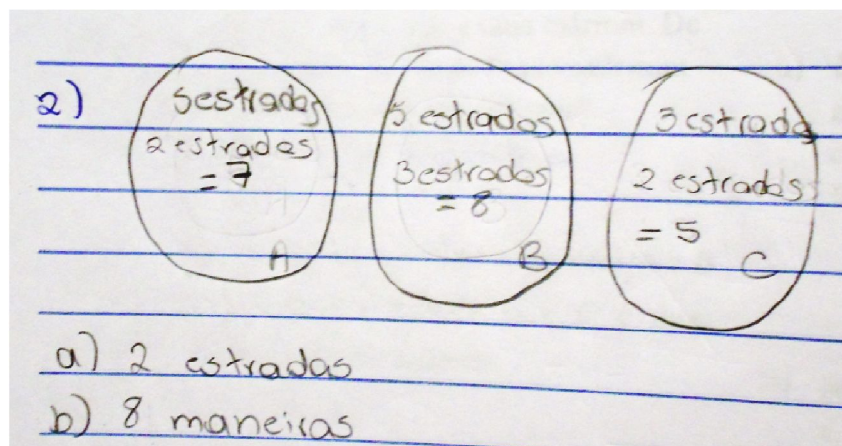 2)
5 estradas
2 estradas
= 7
A
5 estradas
3 estradas
= 8
B
3 estradas
2 estradas
= 5
C
a) 2 estradas
b) 8 maneiras